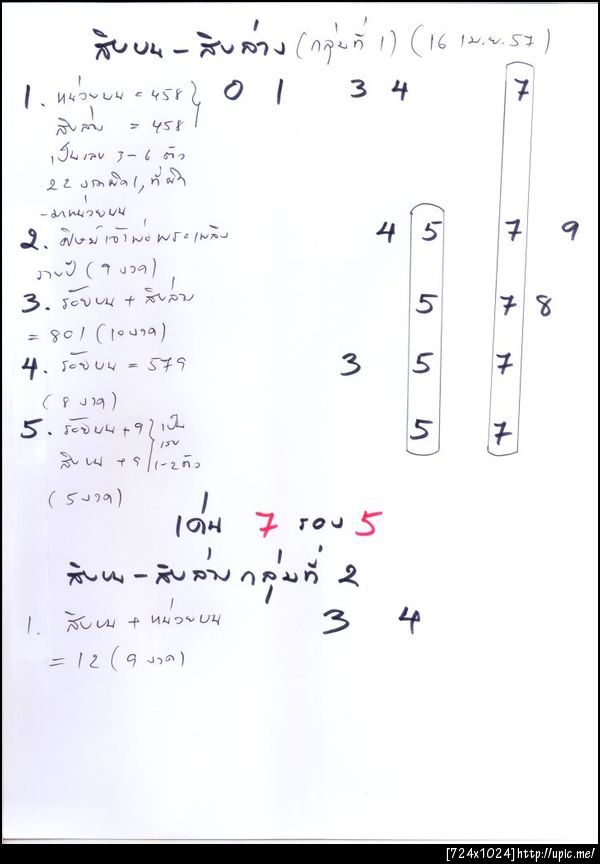 สิบบน - สิบล่าง (กลุ่มที่ 1) (16 เม.ย. 57)
1. หน่วยบน = 458 } 0 1 3 4 7
สิบล่าง = 458
เป็นเลข 3-6 ตัว
22 งวดผิด 1, ที่ผิด
-มาหน่วยบน
2. ศิษย์เจ้าพ่อพระเพลิง 4 5 7 9
รายปี (9 งวด)
3. ร้อยบน + สิบล่าง 5 7 8
= 801 (10 งวด)
4. ร้อยบน = 579 3 5 7
(8 งวด)
5. ร้อยบน + 9 } เป็น 5 7
เลข
สิบบน + 9 1-2 ตัว
(5 งวด)
เด่น 7 รอง 5
สิบบน - สิบล่าง กลุ่มที่ 2
1. สิบบน + หน่วยบน 3 4
= 12 (9 งวด)
[724x1024]http://upic.me/